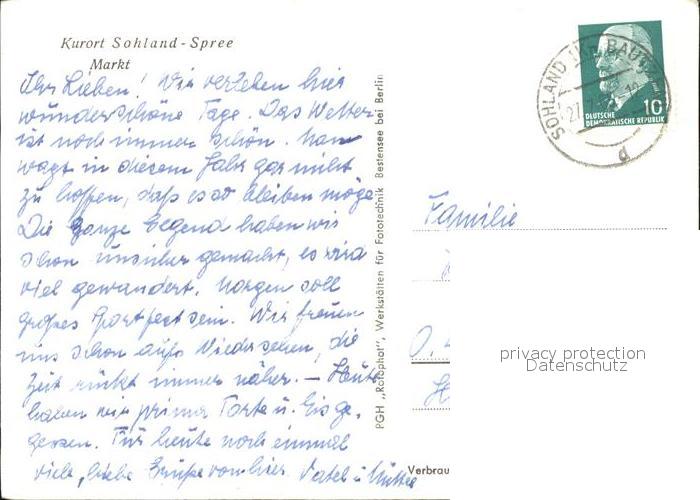 Kurort Sohland-Spree
Markt
Ihr Lieben! Wir verleben hier
wunderschöne Tage. Das Wetter
ist noch immer schön. Man
wagt in diesem Jahr gar nicht
zu hoffen, daß es so bleiben möge.
Die ganze Gegend haben wir
schon unsicher gemacht, es wird
viel gewandert. Morgen soll
großes Sportfest sein. Wir freuen
uns schon aufs Wiedersehen, die
Zeit rückt immer näher. — Heute
haben wir prima Torte u. Eis ge-
gessen. Für heute noch einmal
viele, liebe Grüße von hier. Vatel u. Mutter
PGH „Rotophot", Werkstätten für Fototechnik Bestensee bei Berlin
SOHLAND (Kr. BAUTZEN)
27.7.
d
10
DEUTSCHE
DEMOKRATISCHE REPUBLIK
Familie
O.
H
privacy protection
Datenschutz
Verbrau